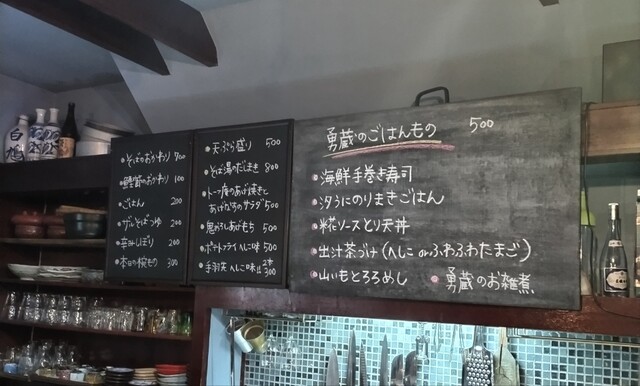 白鳩
・そばのおかわり 700
・鰹節のおかわり 100
・ごはん 200
・ざいそばつゆ 200
・辛みしぼり 200
・本日の椀もり 300
・天ぷら盛り 500
・そば湯のだしまき 800
あげびたしのサラダ 500
・鬼おろしあげもち 500
・ポテトフライへしこ味 500
・手羽先へしこ味 2本 300
勇蔵のごはんもの 500
・海鮮手巻き寿司
・汐うにのりまきごはん
・花ソースとり天丼
・出汁茶づけ(へしこ or ふわふわたまご)
・山いもとろろめし ・勇蔵のお雑煮